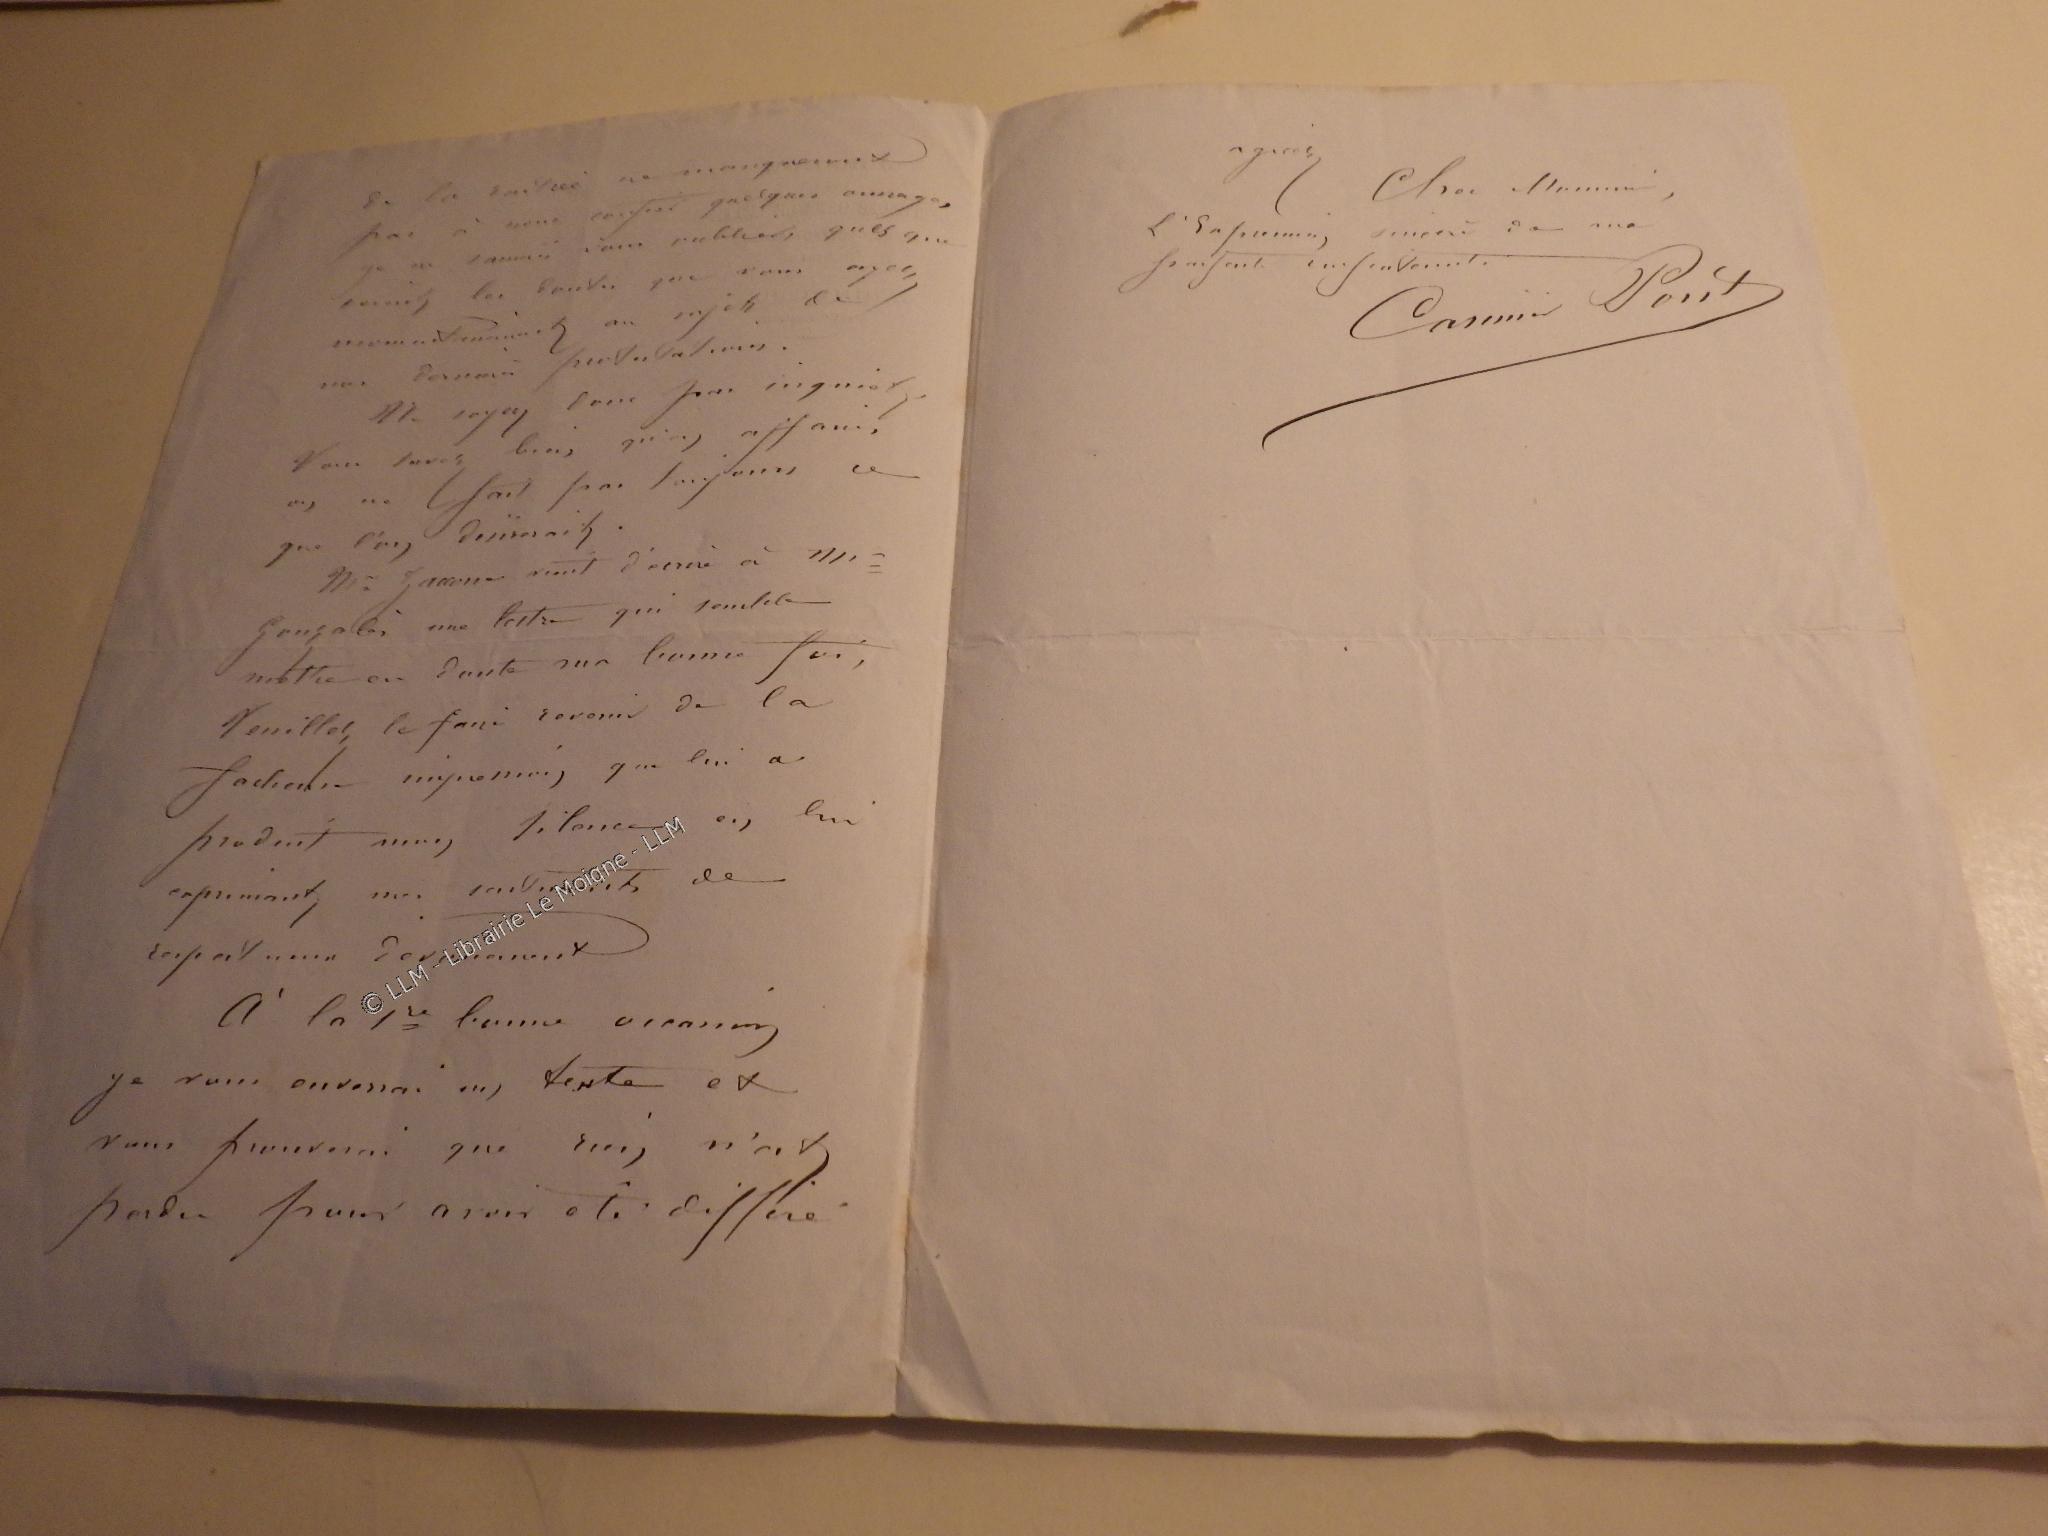 de la société ne manqueront
pas à nous confier quelques ouvrages,
je ne saurais vous oublier, quels que
soient les doutes que vous ayez
momentanément au sujet de
nos dernières protestations.
Ne soyez donc pas inquiet,
Vous savez bien, qu'en affaires,
on ne fait pas toujours ce
que l'on désirerait.
Mr Zaccone vient d'écrire à Mr
Gonzalès une lettre qui semble
mettre en doute ma bonne foi,
Veuillez le faire revenir de la
facheuse impression que lui a
produit mon silence en lui
exprimant mes sentiments de
respectueux dévouement
À la 1re bonne occasion
je vous enverrai un texte et
vous prouverai que rien n'est
perdu pour avoir été différé
agréez
Cher Monsieur,
l'Expression sincère de ma
parfaite
Casimir Pont
© LLM - Librairie Le Moigne - LLM